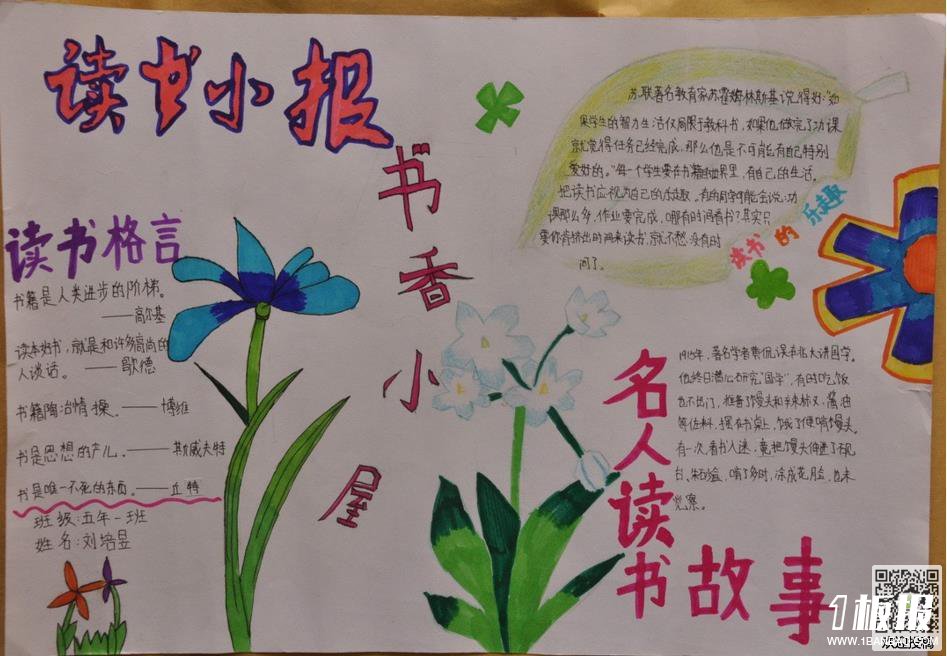 读书小报
书香小屋
读书格言
书籍是人类进步的阶梯。
——高尔基
读本好书，就是和许多高尚的
人谈话。——歌德
书籍陶冶情操。——博维
书是思想的产儿。——斯威夫特
书是唯一不死的东西。——丘特
班级：五年一班
姓名：刘培昱
苏联著名教育家苏霍姆林斯基说得好："如
果学生的智力生活仅局限于教科书，如果他做完了功课
就觉得任务已经完成，那么他是不可能有自己特别
爱好的。"每一个学生要在书籍的世界里，有自己的生活。
把读书应视为自己的乐趣。有的同学可能会说：功
课那么多，作业要完成，哪有时间看书？其实只
要你肯挤出时间来读书，就不愁没有时
间了。
读书的乐趣
名人读书故事
1915年，著名学者黄侃
他终日潜心研究"国学"，有时吃饭
也不出门，准备了馒头和辣椒、酱油
等佐料，摆在书桌上，饿了便啃馒头。
有一次看书入迷，竟把馒头伸进了砚
台、朱砂盒，啃了多时，涂成花脸，也未
觉察。
1板报
WWW.1BANBAO.COM
欢迎投稿